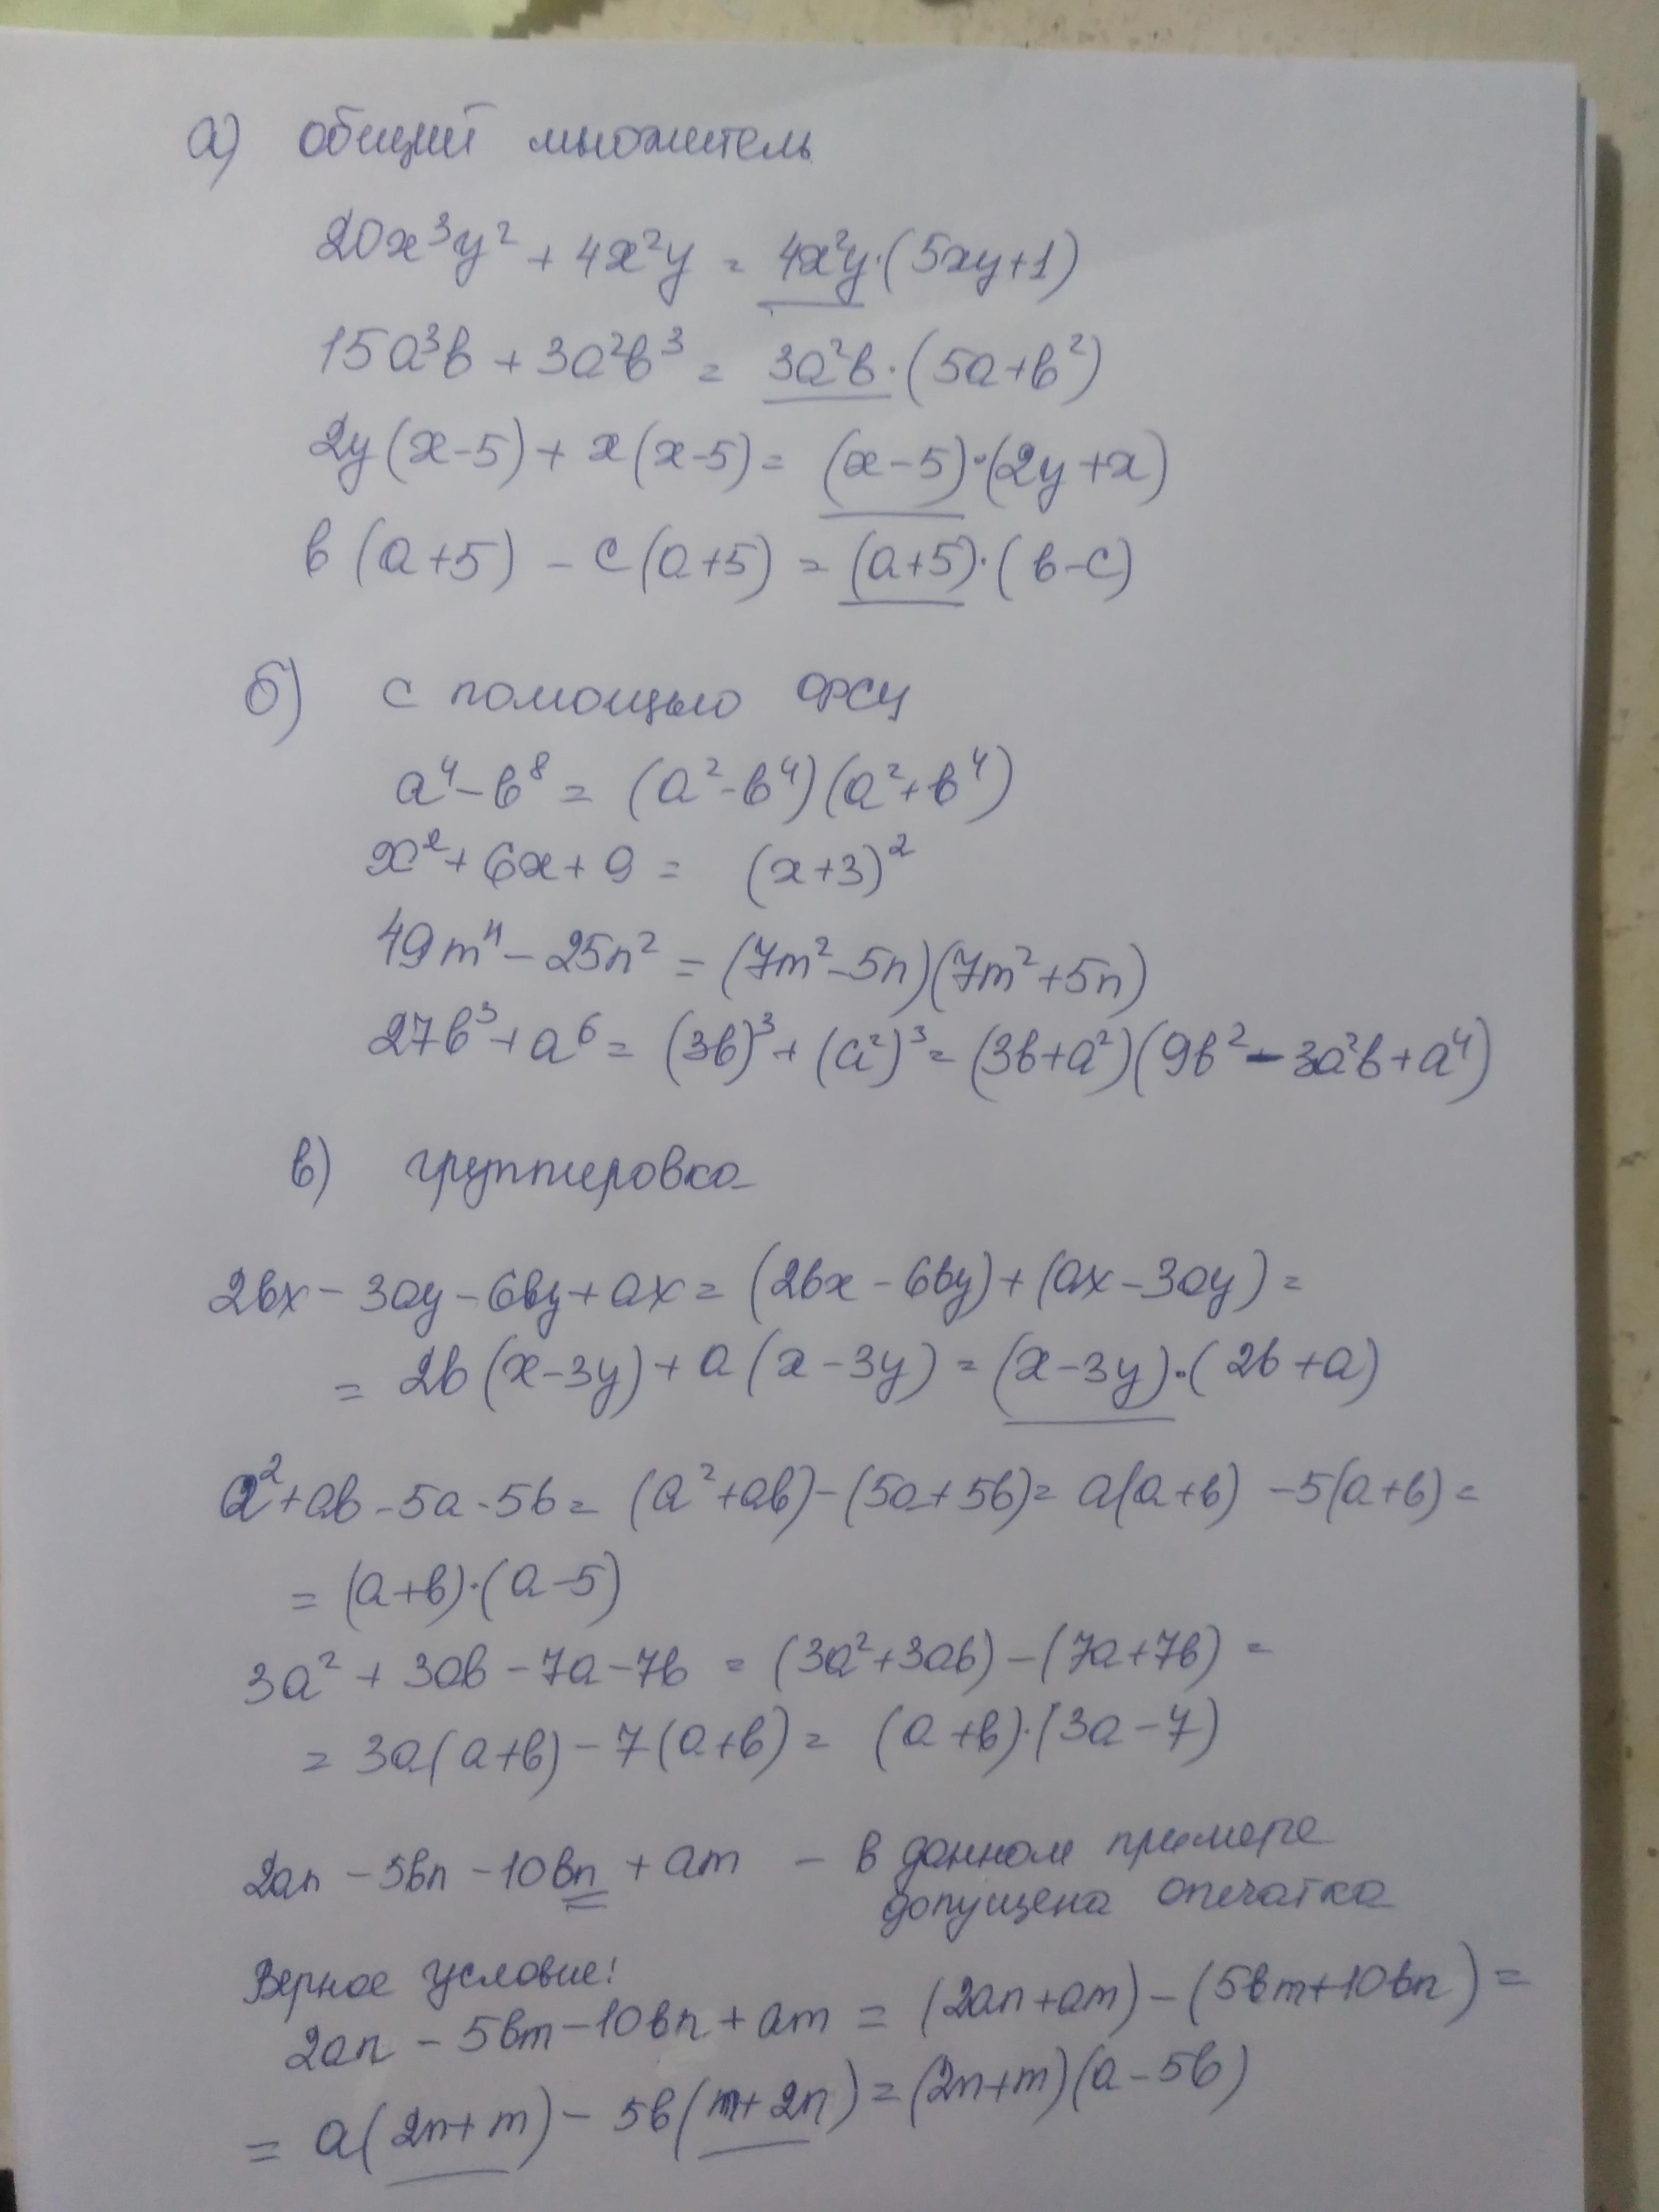 а) общий множитель
20x³y² + 4x²y = 4x²y·(5xy+1)
15a³b + 3a²b³ = 3a²b·(5a+b²)
2y(x-5) + x(x-5) = (x-5)·(2y+x)
b(a+5) - c(a+5) = (a+5)·(b-c)
б) с помощью ФСУ
a⁴-b⁸ = (a²-b⁴)(a²+b⁴)
x²+6x+9 = (x+3)²
49m⁴-25n² = (7m²-5n)(7m²+5n)
27b³+a⁶ = (3b)³+(a²)³ = (3b+a²)(9b²-3a²b+a⁴)
в) группировка
2bx-3ay-6by+ax = (2bx-6by)+(ax-3ay) =
= 2b(x-3y)+a(x-3y) = (x-3y)·(2b+a)
a²+ab-5a-5b = (a²+ab)-(5a+5b) = a(a+b)-5(a+b) =
= (a+b)·(a-5)
3a²+3ab-7a-7b = (3a²+3ab)-(7a+7b) =
= 3a(a+b)-7(a+b) = (a+b)·(3a-7)
2an-5bn-10bn+am - в данном примере
допущена опечатка
Верное условие:
2an-5bm-10bn+am = (2an+am)-(5bm+10bn) =
= a(2n+m)-5b(m+2n) = (2n+m)(a-5b)